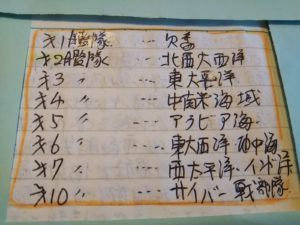 才1艦隊 --- 欠番
才2艦隊 --- 北西大西洋
才3 〃 --- 東太平洋
才4 〃 --- 中南米海域
才5 〃 --- アラビア海
才6 〃 --- 東大西洋・地中海
才7 〃 --- 西太平洋・インド洋
才10 〃 --- サイバー戦部隊